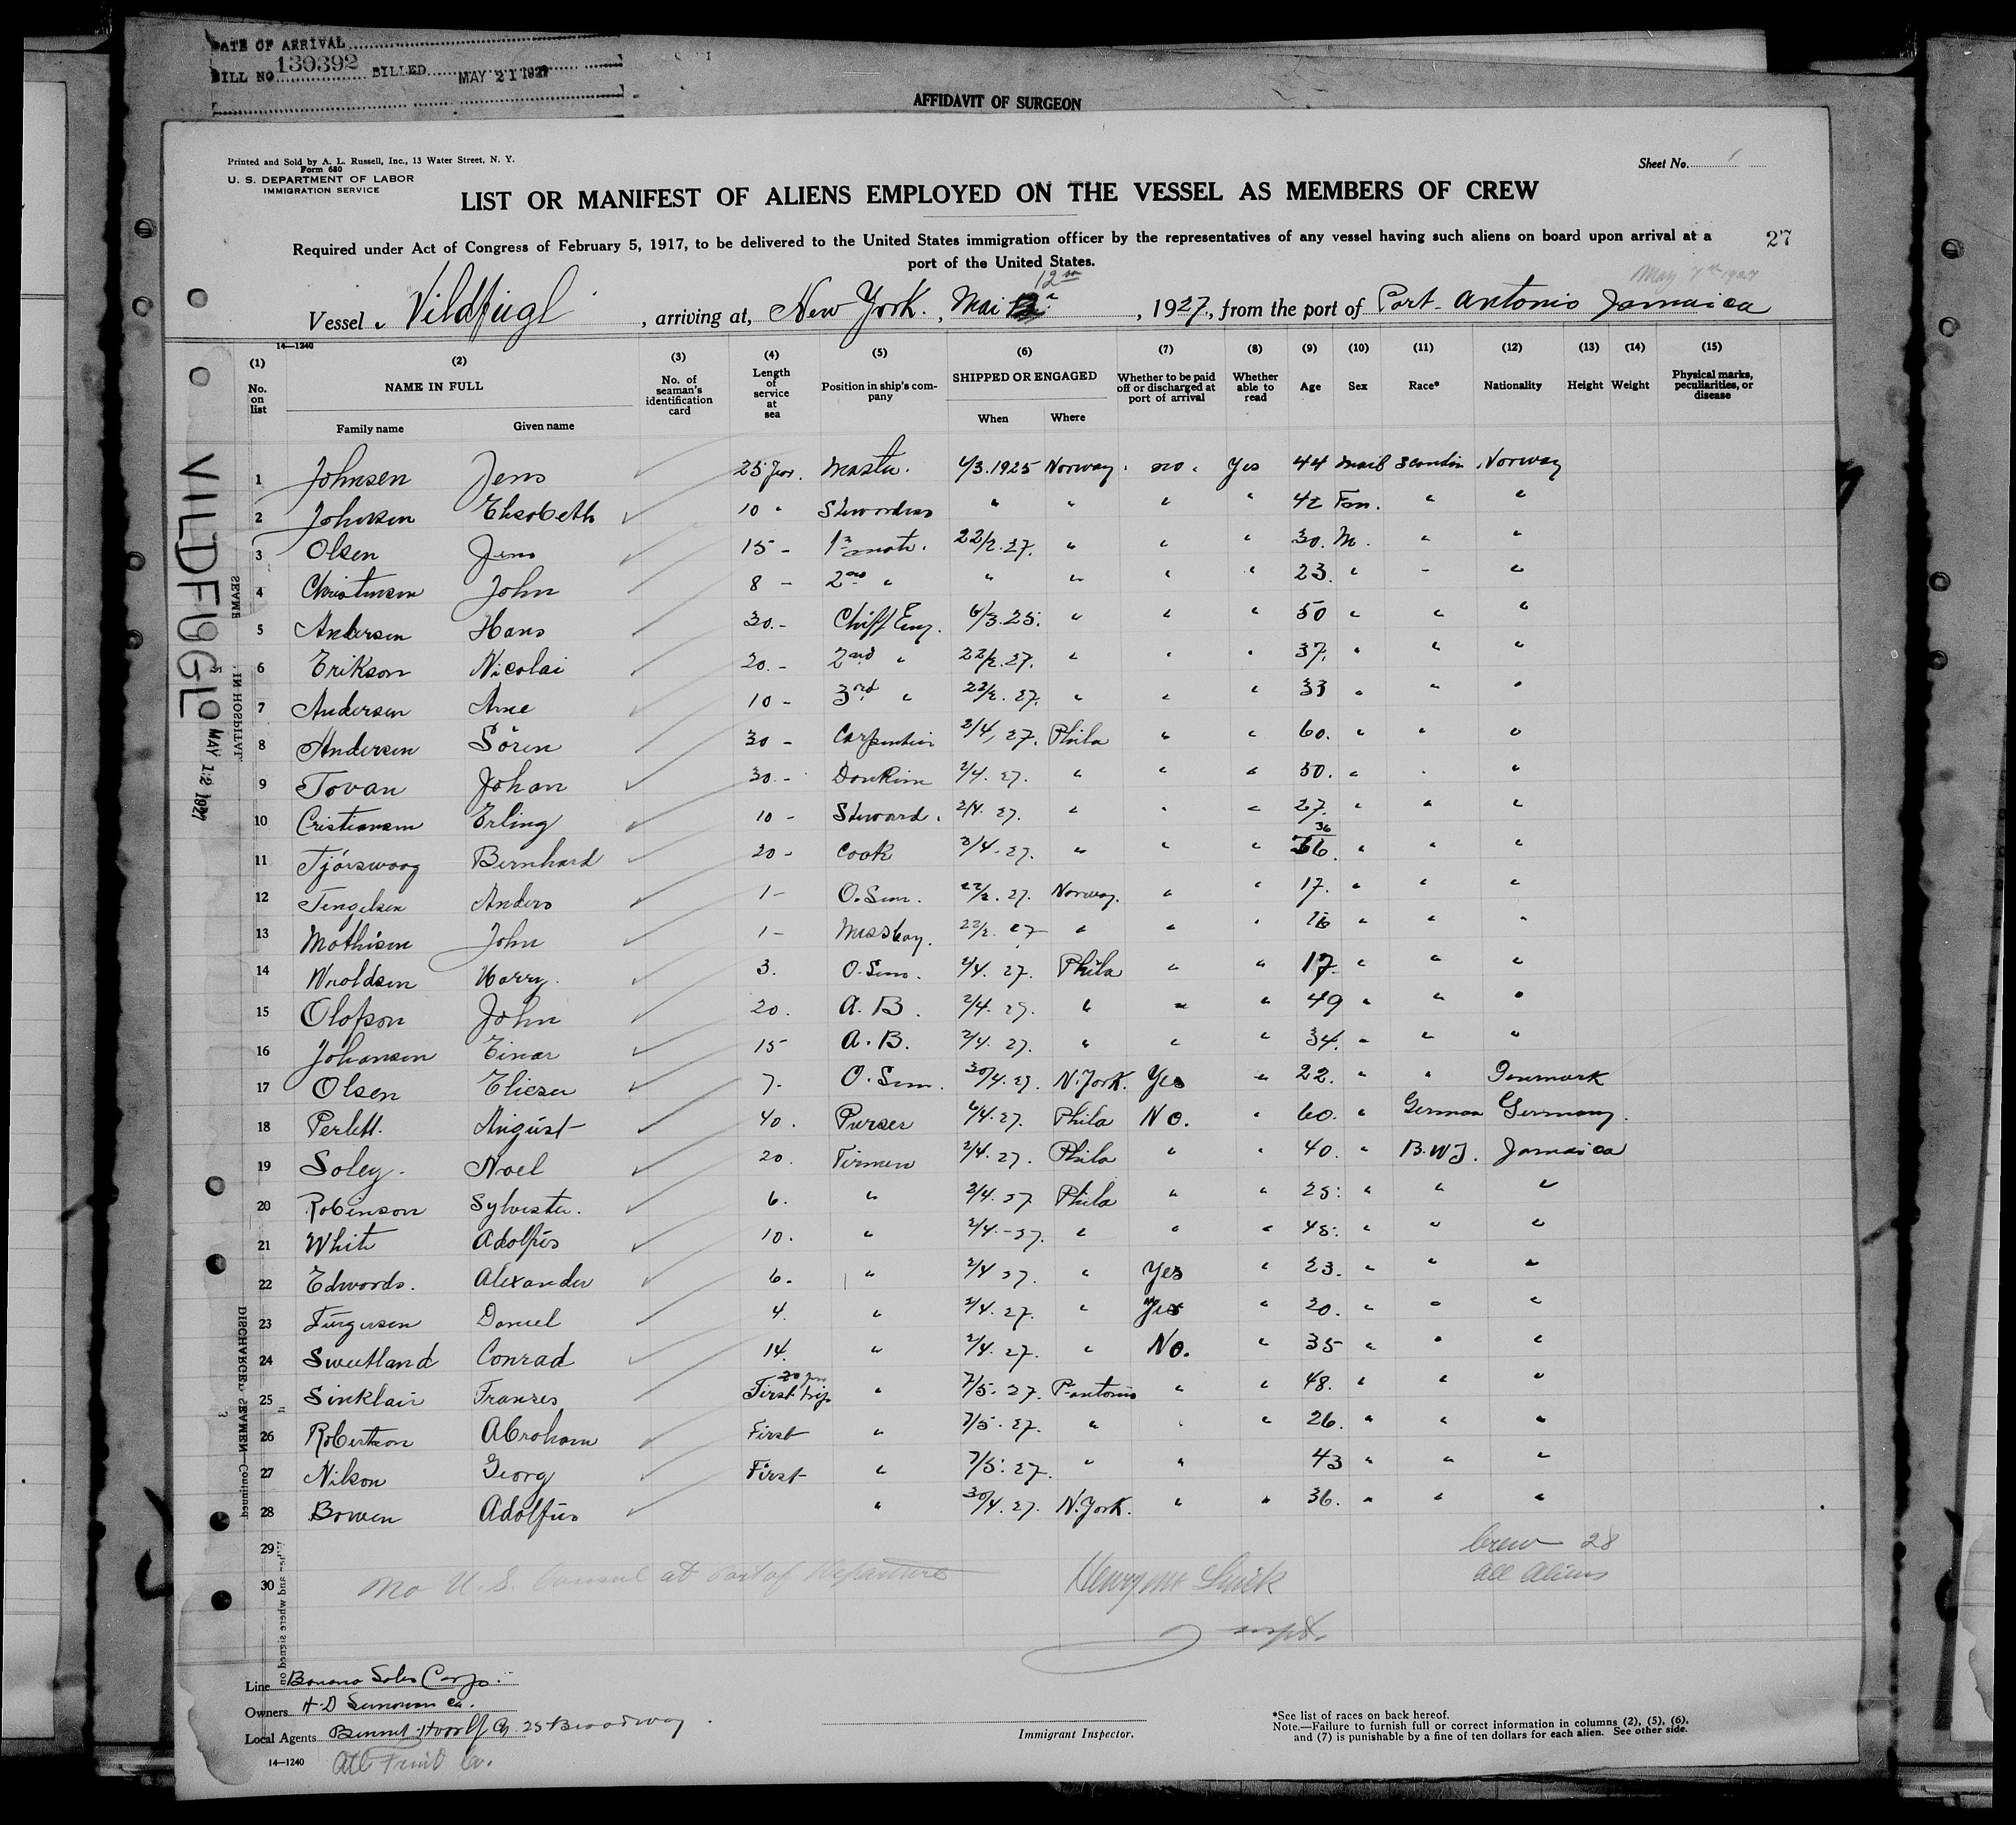 DATE OF ARRIVAL
BILL NO 130392 BILLED MAY 21 1927
AFFIDAVIT OF SURGEON
Printed and Sold by A. L. Russell, Inc., 13 Water Street, N. Y.
Form 680
U. S. DEPARTMENT OF LABOR
IMMIGRATION SERVICE
Sheet No. 1
LIST OR MANIFEST OF ALIENS EMPLOYED ON THE VESSEL AS MEMBERS OF CREW
Required under Act of Congress of February 5, 1917, to be delivered to the United States immigration officer by the representatives of any vessel having such aliens on board upon arrival at a
port of the United States.
27
May 7th 1927
12th
Vessel Vildfugl, arriving at, New York., Mai, 1927, from the port of Port Antonio Jamaica
14—1240
(1) (2) (3) (4) (5) (6) (7) (8) (9) (10) (11) (12) (13) (14) (15)
No. on list NAME IN FULL Family name Given name No. of seaman's identification card Length of service at sea Position in ship's company SHIPPED OR ENGAGED When Where Whether to be paid off or discharged at port of arrival Whether able to read Age Sex Race* Nationality Height Weight Physical marks, peculiarities, or disease
1 Johnsen Jens 25 Master. 6/3.1925 Norway. no. Yes 44 Norway
2 Johnsen Elisabeth 10 " Stewardess " " " " 42 Fem. " "
3 Olsen Jens 15 - 1st mate. 22/2.27. " " " 30. M. " "
4 Christensen John 8 - 2nd " " " " " 23. " - "
5 Andersen Hans 30.- Chiff Eng. 6/3.25. " " " 50 " " "
6 Erikson Nicolai 20.- 2nd " 22/2.27. " " " 37. " " "
7 Andersen Arne 10 - 3rd " 22/2.27. " " " 33 " " "
8 Andersen Sören 30 - 2/4, 27. Phila " " 60. " " "
9 Tovan Johan 30.- 2/4.27. " " " 50. " . "
10 Cristiansen Erling 10 - Steward. 2/4.27. " " " 27. " " "
11 Bernhard 20 - Cook 2/4.27. " " " 36 " " "
12 Anders 1 - O.Sem. 22/2.27. Norway. " " 17. " " "
13 Mathisen John 1 - Messboy. 22/2.27 " " " " " "
14 Harry. 3. O.Sem. 2/4.27. Phila " " 17. " " "
15 Olofson John 20. A.B. 2/4.27. " " " 49 " " "
16 Johansen Einar 15 A.B. 2/4.27. " " " 34. " " "
17 Olsen Elieser 7. O.Sem. 30/4.27. N.York. Yes " 22. " " Denmark
18 August 40. Purser 6/4.27. Phila No. " 60. " German Germany.
19 Soley. Noel 20. Firmen 2/4.27. Phila " " 40. " B.W.I. Jamaica
20 Robinson Sylvester. 6. " 2/4.27. Phila " " 25. " " "
21 White Adolfus 10. " 2/4.-27. " " " 45. " " "
22 Edwards. Alexander 6. " 2/4 27. " Yes " 23. " " "
23 Fürgusen Daniel 4. " 2/4.27. " Yes " 20. " " "
24 Sweetland Conrad 14. " 2/4.27. " No. " 35 " " "
25 Sinklair Franses First trip " 7/5.27. P.antonio " " 48. " " "
26 Robertson Abraham First " 7/5.27. " " " 26. " " "
27 Nilson Georg First " 7/5.27. " " " 43 " " "
28 Bowen Adolfus " 30/4.27. N.York. " " 36. " " "
29
Crew 28
30
No U.S. Consul at Port of Departure
all Aliens
VILDFUGL
MAY 12 1927
SEAMEN IN HOSPITAL
DISCHARGED SEAMEN—Continued
Line Banana Sales Corp.
Owners
Local Agents 25 Broadway
Atl Fruit Co.
Immigrant Inspector.
*See list of races on back hereof.
Note.—Failure to furnish full or correct information in columns (2), (5), (6),
and (7) is punishable by a fine of ten dollars for each alien. See other side.
14—1240